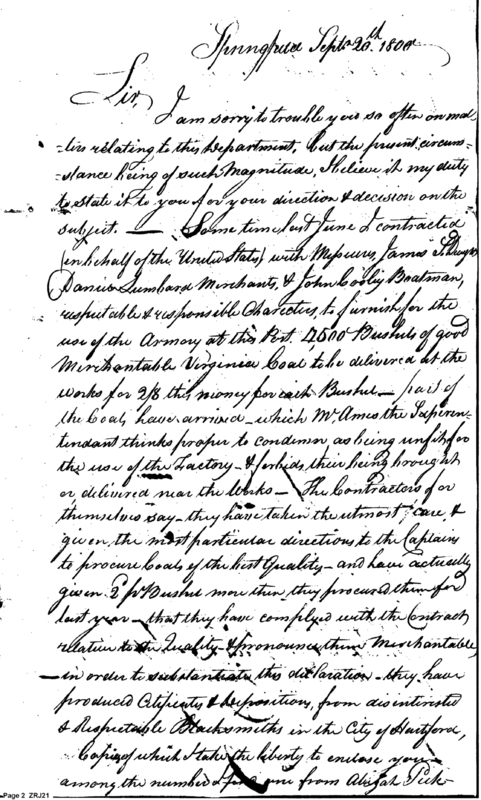 Springfield Septr 20th 1800
Sir,
I am sorry to trouble you so often on mat
-ters relating to this Department, but the present circum
-stance being of such Magnitude, I believe it my duty
to state it to you for your direction & decision on the
subject. — Some time last June I contracted
(in behalf of the United States) with Messieurs James
Daniel Lumbard Merchants, & John Cooley Boatman,
respectable & responsible Charecters, to furnish for the
use of the Armory at this Post. 4,500 Bushels of good
Merchantable Virginia Coal to be delivered at the
works for 2/8 this money for each Bushel — part of
the Coals have arrived — which Mr. Ames the Superen-
tendant thinks proper to condemn, as being unfit for
the use of the Factory — & forbids their being brought
or delivered near the Works — The Contractors for
themselves say — they have taken the utmost care, &
given the most particular directions to the Captains
to procure Coals of the best Quality — and have actually
given 2d pr Bushel more than they procured them for
last year — that they have complyed with the Contract
relative to the Quality & pronounce them Merchantable,
— in order to substantiate this declaration — they have
produced Certificates & depositions, from disinterested
& Respectable Blacksmiths in the City of Hartford,
Copies of which I take the liberty to enclose you —
among the number is one from Abijah Peck
Page 2 ZRJ21